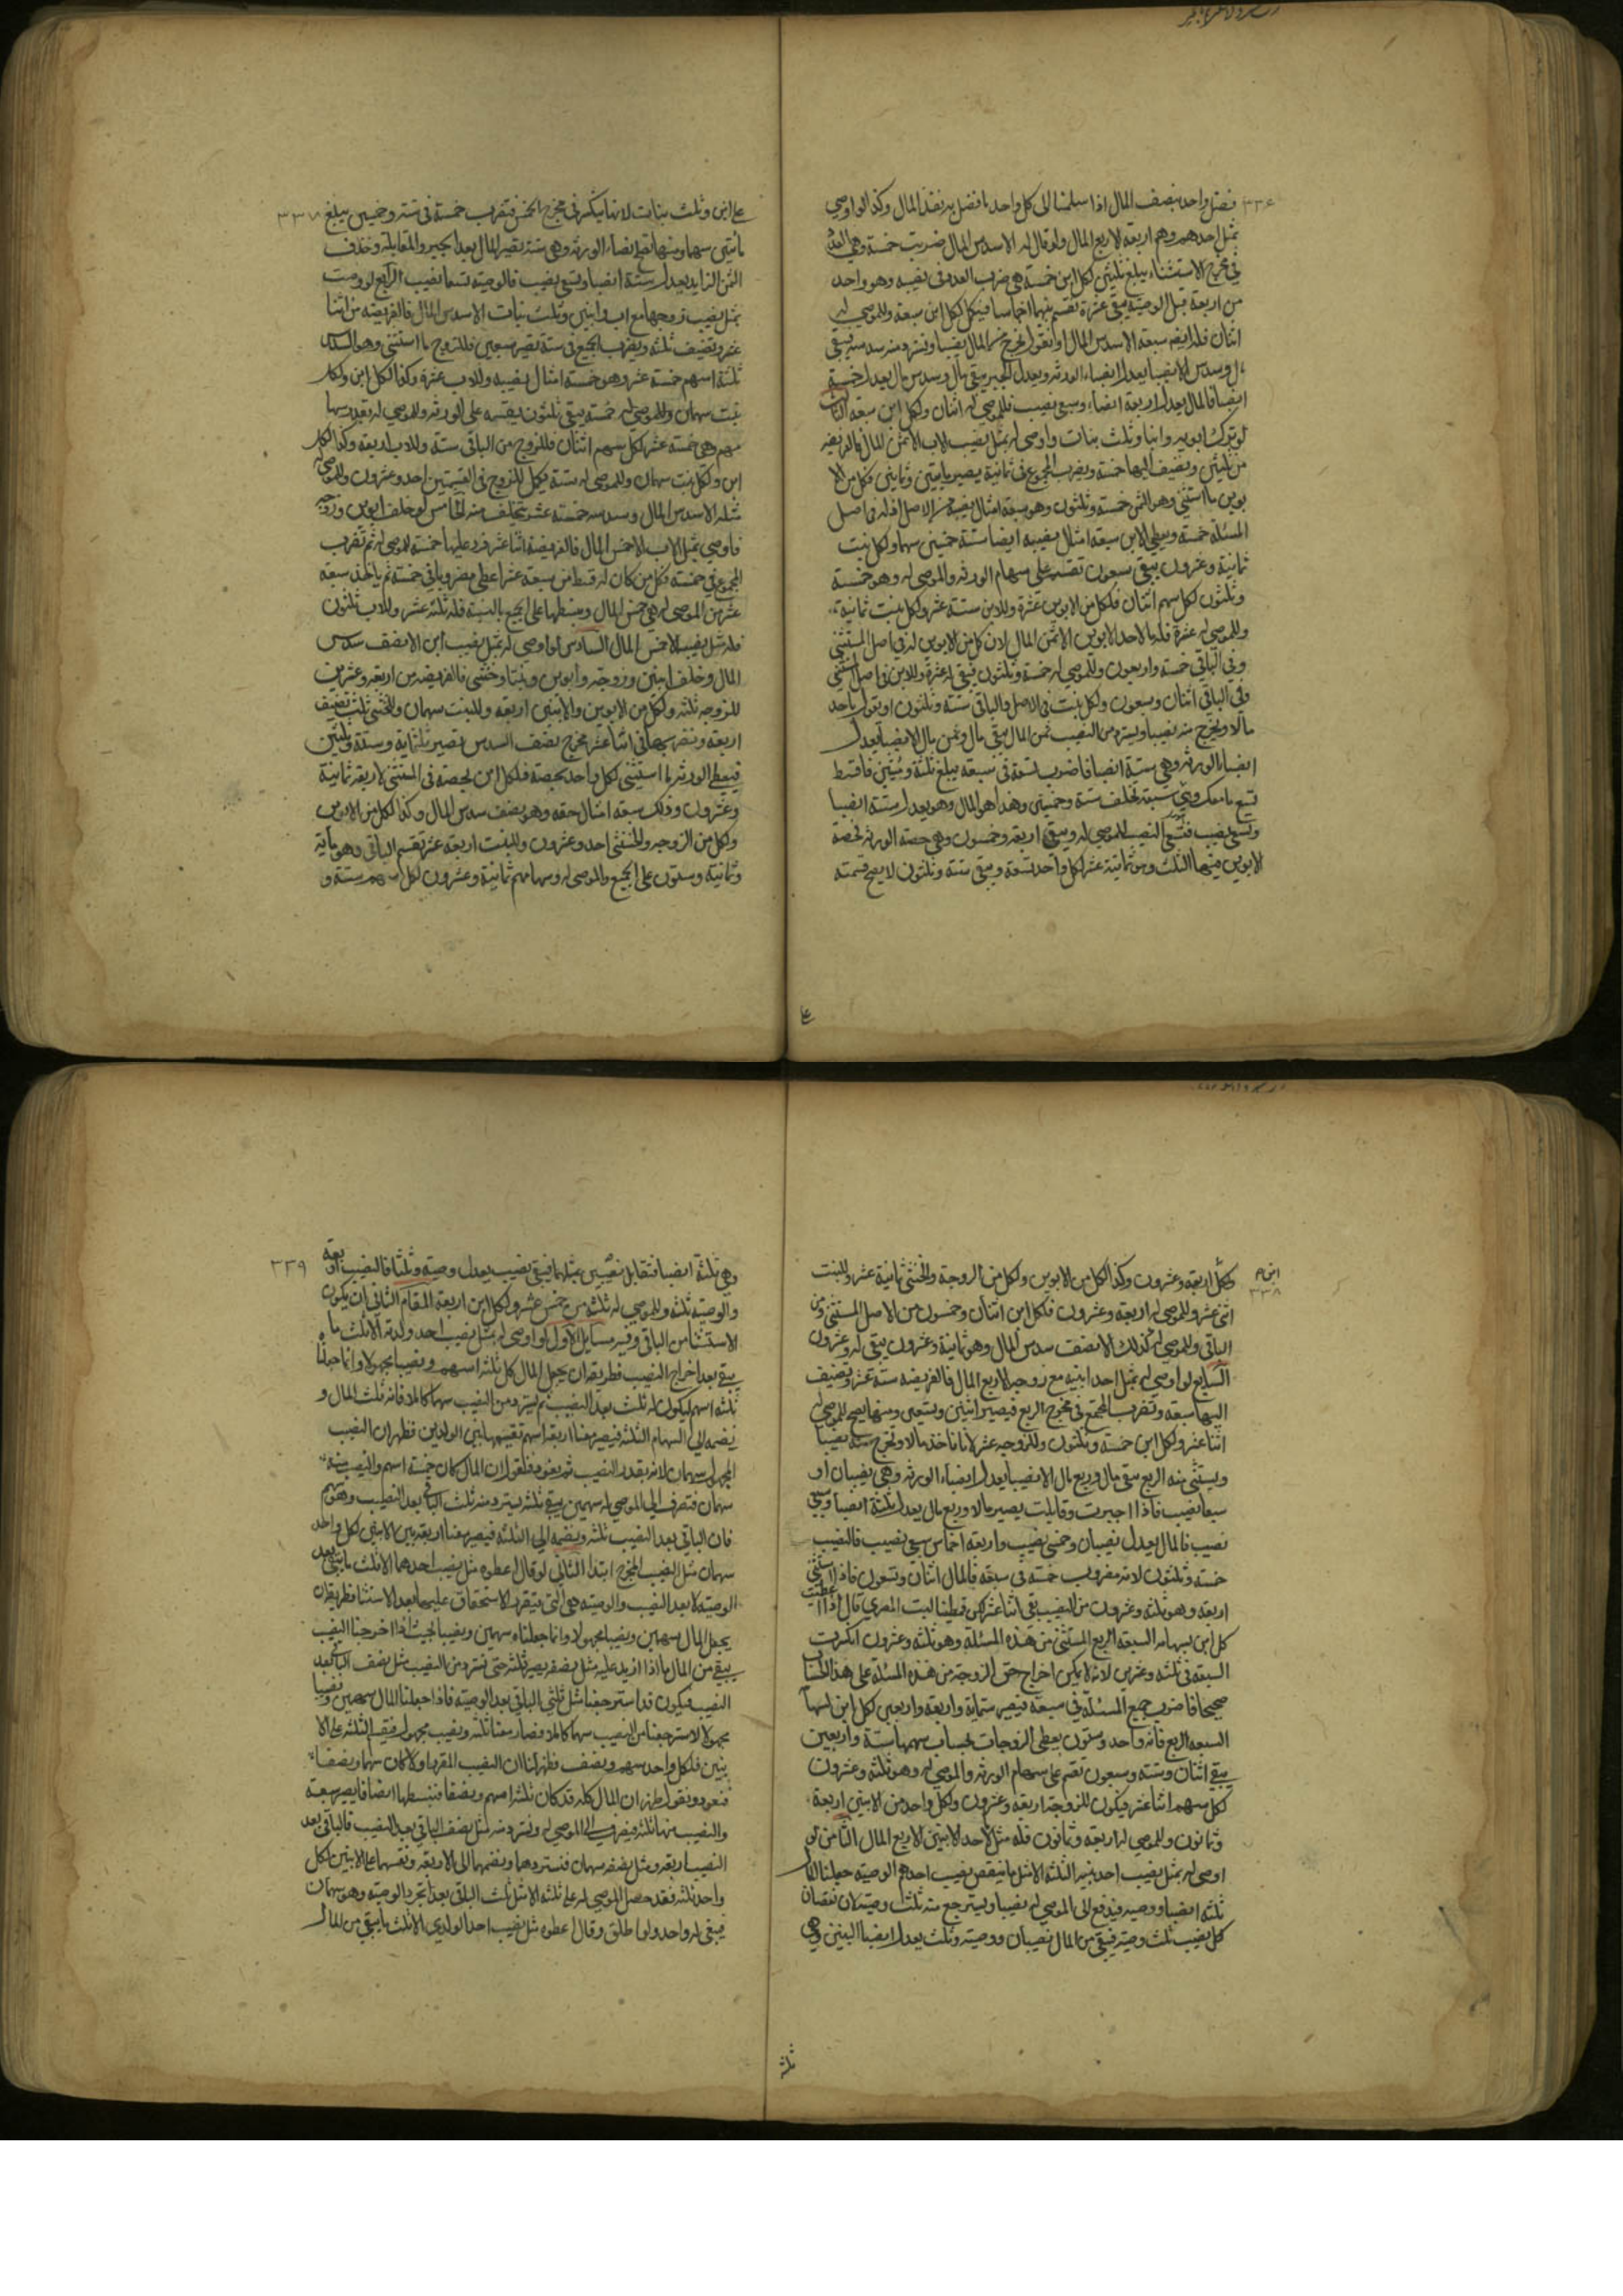 ٣٣٦
فضل واحد بنصف المال اذا سلمنا الى كل واحد ما فضل به نفذ المال وكذا لو اوصى
بمثل احدهم وهم اربعة الا ربع المال ولو قال له الا سدس المال ضربت خمسة وهي العدد
في مخرج الاستثناء يبلغ ثلثين لكل ابن خمسة هي ضرب العدد في نصيبه وهو واحد
من اربعة قبل الوصية يبقى عشرة تقسم بينهما اخماسا فيكمل لكل ابن سبعة وللموصى له
اثنان فله النصيب سبعة الا سدس المال او نقول نخرج من المال نصيبا ونسترد منه سدسه يبقى
مال وسدس الا نصيبا يعدل انصباء الورثة وبعد الجبر يبقى مال وسدس مال يعدل خمسة
انصبا فالمال يعدل اربعة انصباء وسبع نصيب فللموصى له اثنان ولكل ابن سبعة الثالث
لو ترك ابويه وابنا وثلث بنات واوصى له بمثل نصيب الاب الا ثمن المال فالفريضة
من ثلثين ونضيف اليها خمسة ويضرب المجموع في ثمانية يصير مايتين وثمانين فكل من الا
بوين ما استثنى وهو الثمن خمسة وثلثون وهو سبعة امثال نصيبه من الاصل اذ له في اصل
المسئلة خمسة ويعطي الابن سبعة امثال نصيبه ايضا ستة خمسين سهما ولكل بنت
ثمانية وعشرون يبقى سبعون تقسم على سهام الورثة والموصى له وهو خمسة
وثلثون لكل سهم اثنان فلكل من الابوين عشرة وللابن ستة عشر ولكل بنت ثمانية
وللموصى له عشرة فله ما لاحد الابوين الا ثمن المال لان كل من الابوين له في اصل المستثنى
وفي الباقي خمسة واربعون وللموصى له خمسة وثلثون فيبقى له عشرة وللابن في اصل المستثنى
وفي الباقي اثنان وسبعون ولكل بنت في الاصل والباقي ستة وثلثون او نقول ياخذ
مالا ونخرج منه نصيبا ويسترد من النصيب ثمن المال يبقى مال وثمن مال الا نصيبا يعدل
انصباء الورثة وهي ستة انصبا فاضرب تسعة في سبعة يبلغ ثلثة وستين فاقسط
تسع ما معك وهي سبعة تخلف ستة وخمسين وهذا هو المال وهو يعدل ستة انصبا
وتسعي نصيب فتسعا النصيب للموصى له ويبقى اربعة وخمسون وهي حصة الورثة لحصة
الابوين منها الثلث وهو ثمانية عشر لكل واحد تسعة ويبقى ستة وثلثون لا يصح قسمته
على
٣٣٧
على ابن وثلث بنات لانها ينكسر في مخرج الخمس فتضرب خمسة في ستة وخمسين يبلغ
مأتين سهما ومنها تصح انصباء الورثة وهي ستة يصير المال بعد الجبر والمقابلة وحذف
الثمن الزايد يعدل ستة انصبا وتسعي نصيب فالوصية تسعا نصيب الرابع لو اوصت
بمثل نصيب زوجها مع اب وابنين وثلث بنات الا سدس المال فالفريضة من اثنا
عشر ونضيف ثلثة ويضرب الجميع في ستة تصير تسعين فللزوج ما استثنى وهو السدس
ثلثة اسهم خمسة عشر وهو خمسة امثال نصيبه وللاب عشرة وكذا لكل ابن ولكل
بنت سهمان وللموصى له خمسة يبقى ثلثون يقسم على الورثة وللموصى له بقدر سها
مهم وهي خمسة عشر لكل سهم اثنان فللزوج من الباقي ستة وللاب اربعة وكذا لكل
ابن ولكل بنت سهمان وللموصى له ستة فيكمل للزوج في القسمين احد وعشرون وللموصى له
مثله الا سدس المال وسدسه خمسة عشر يتخلف منه الخامس لو خلف ابوين وزوجه
فاوصى بمثل الاب الا خمس المال فالفريضة اثنا عشر فزد عليها خمسة للموصى له ثم تضرب
المجموع في خمسة فكل من كان له قسط من سبعة عشر اعطى مضروبا في خمسة ثم ياخذ سبعة
عشر من الموصى له هي خمس المال وبسطها على الجميع بالنسبة فله ثلثة عشر وللاب ثلثون
فله مثل نصيبه الا خمس المال السادس لو اوصى له بمثل نصيب ابن الا نصف سدس
المال وخلف ابنين وزوجة وابوين وبنتا وخنثى فالفريضة من اربعة وعشرين
للزوجة ثلثة ولكل من الابوين والابنين اربعة وللبنت سهمان وللخنثى ثلثة نضيف
اربعة ونضربها في اثنا عشر مخرج نصف السدس تصير ثلثماية وستة وثلثين
فيعطى الورثة ما استثنى لكل واحد بحصته فلكل ابن بحصته في المستثنى الاربعة ثمانية
وعشرون وذلك سبعة امثال حقه وهو نصف سدس المال وكذا لكل من الابوين
ولكل من الزوجة والخنثى احد وعشرون وللبنت اربعة عشر تقسم الباقي وهو مأية
وثمانية وستون على الجميع والموصى له وسهامهم ثمانية وعشرون لكل سهم ستة و
٣٣٨
لكل ابن اربعة وعشرون وكذا لكل من الابوين ولكل من الزوجة والخنثى ثمانية عشر وللبنت
اثنى عشر وللموصى له اربعة وعشرون فلكل ابن اثنان وخمسون من الاصل المستثنى ومن
الباقي وللموصى له كذلك الا نصف سدس المال وهو ثمانية وعشرون يبقى له وعشرون
السابع لو اوصى له بمثل احد ابنيه مع زوجة الا ربع المال فالفريضة ستة عشر ونضيف
اليها سبعة ونضرب المجتمع في مخرج الربع فيصير اثنين وتسعين ومنها يصح للموصى له
اثنا عشر ولكل ابن خمسة وثلثون وللزوجة عشر لانا ناخذ مالا ونخرج منه نصيبا
ويستثنى منه الربع يبقى مال وربع مال الا نصيبا يعدل انصباء الورثة وهي نصيبان او
سبعا نصيب فاذا اجبرت وقابلت يصير مالا وربع مال يعدل ثلثة انصبا وسبعي
نصيب فالمال يعدل نصيبان وخمسي نصيب واربعة اخماس سبعي نصيب فالنصيب
خمسة وثلثون لانه مضروب خمسة في سبعة فالمال اثنان وتسعون فاذا استثنى
اربعة وهو ثلثة وعشرون من النصيب بقي اثنا عشر لكن قطبنا البت المصري قال اذا اعطيت
كل ابن لسهامه السبعة الربع المستثنى من هذه المسئلة وهو ثلثة وعشرون انكسرت
السبعة في ثلثة وعشرين لانه لا يمكن اخراج حق الزوجة من هذه المسئلة على هذا الحساب
صحيحا فاضرب جميع المسئلة في سبعة فيصير ستماية واربعة واربعين لكل ابن لسهامه
السبعة الربع فانه واحد وستون يعطى الزوجات بحساب سهمها ستة واربعين
يبقى اثنان وستة وسبعون تقسم على سهام الورثة والموصى له وهو ثلثة وعشرون
لكل سهم اثنا عشر فيكون للزوجة اربعة وعشرون ولكل واحد من الابنين اربعة
وثمانون وللموصى له اربعة وثمانون فله مثل لأحد الابنين الا ربع المال الثامن لو
اوصى له بمثل نصيب احد بنيه الثلثة الا مثل ما ينقص نصيب احدهم الوصية جعلنا المال
ثلثة انصبا ووصية فيدفع الى الموصى له نصيبا ويسترجع منه ثلث وصية لان نقصان
كل نصيب ثلث وصية فيبقى من المال نصيبان ووصية وثلث يعدل انصبا البنين وهي
ثلثة
٣٣٩
وهي ثلثة انصبا فتقابل نصيبين بمثلهما فيبقى نصيب يعدل وصية وثلثا فالنصيب اربعة
والوصية ثلثة وللموصى له ثلثة من خمس عشر ولكل ابن اربعة المقام الثاني ان يكون
الاستثنا من الباقي وفيه مسايل الاول لو اوصى له بمثل نصيب احد ولديه الا ثلث ما
يبقى بعد اخراج النصيب فطريقه ان يجعل المال كل ثلثة اسهم ونصيبا مجهولا وانما جعلنا
ثلثة اسهم ليكون له ثلث بعد النصيب ثم يسترد من النصيب سهما كاملا فانه ثلث المال و
يضمه الى السهام الثلثة فيصير معنا اربعة اسهم تقسمها بين الولدين فظهر ان النصيب
المجهول سهمان لانه بقدر النصيب ثم يعود فنقول ان المال كان خمسة اسهم والنصيب منه
سهمان فتصرف الى الموصى له سهمين يبقى ثلثة يسترد منه ثلث الباقي بعد النصيب وهو سهم
فان الباقي بعد النصيب ثلثة ويضمه الى الثلثة فيصير معنا اربعة بين الابنين لكل واحد
سهمان مثل النصيب المخرج ابتدا الثاني لو قال اعطوه مثل نصيب احدهما الا ثلث ما يبقى بعد
الوصية لا بعد النصيب والوصية هي التي يتقرر الاستحقاق عليها بعد الاستثنا فطريقه ان
يجعل المال سهمين ونصيبا مجهولا وانما جعلناه سهمين ونصيبا بحيث اذا اخرجنا النصيب
يبقى من المال ما اذا ازيد عليه مثل نصفه يصير ثلثة حتى نسترد من النصيب مثل نصف الباقي بعد
النصيب فيكون قد استرجعنا مثل ثلثي الباقي بعد الوصية فاذا جعلنا المال سهمين ونصيبا
مجهولا لاسترجعنا من النصيب سهما كاملا فصار معنا ثلثة ونصيب مجهول فيقسم الثلثة على الا
بنين فلكل واحد سهم ونصف فظهر لنا ان النصيب المقر اولا كان سهما ونصفا
فنعود ونقول ظهر ان المال كله قد كان ثلثة اسهم ونصفا فنبسطها انصافا يصير سبعة
والنصيب منها ثلثة فيصرف الى الموصى له ونسترد منه مثل نصف الباقي بعد النصيب فالباقي بعد
النصيب اربعة ومثل نصفه سهمان فنستردهما ونضمهما الى الاربعة ونقسمها على الابنين لكل
واحد ثلثة فقد حصل للموصى له على ثلثة الا مثل ثلث الباقي بعد اتجرد الوصية وهو سهمان
فيبقى له واحد ولو اطلق وقال اعطوه مثل نصيب احد الولدين الا ثلث ما يبقى من المال